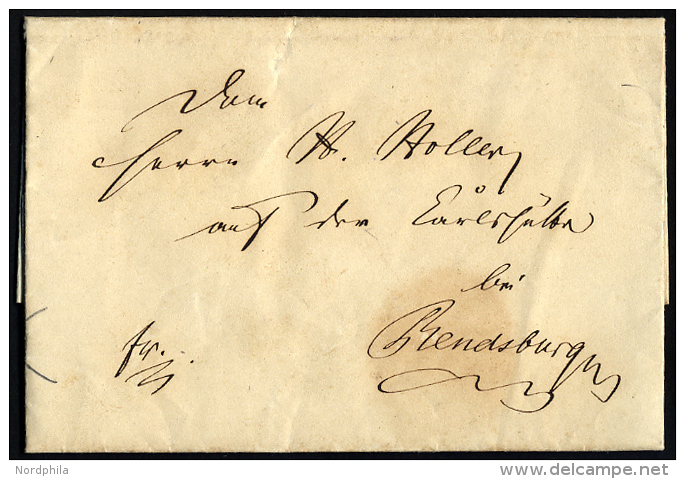 Dem
Herrn H. Holler
auf der Carlshütte
bei
Rendsburg
fr.
Nordphila
www.delcampe.net